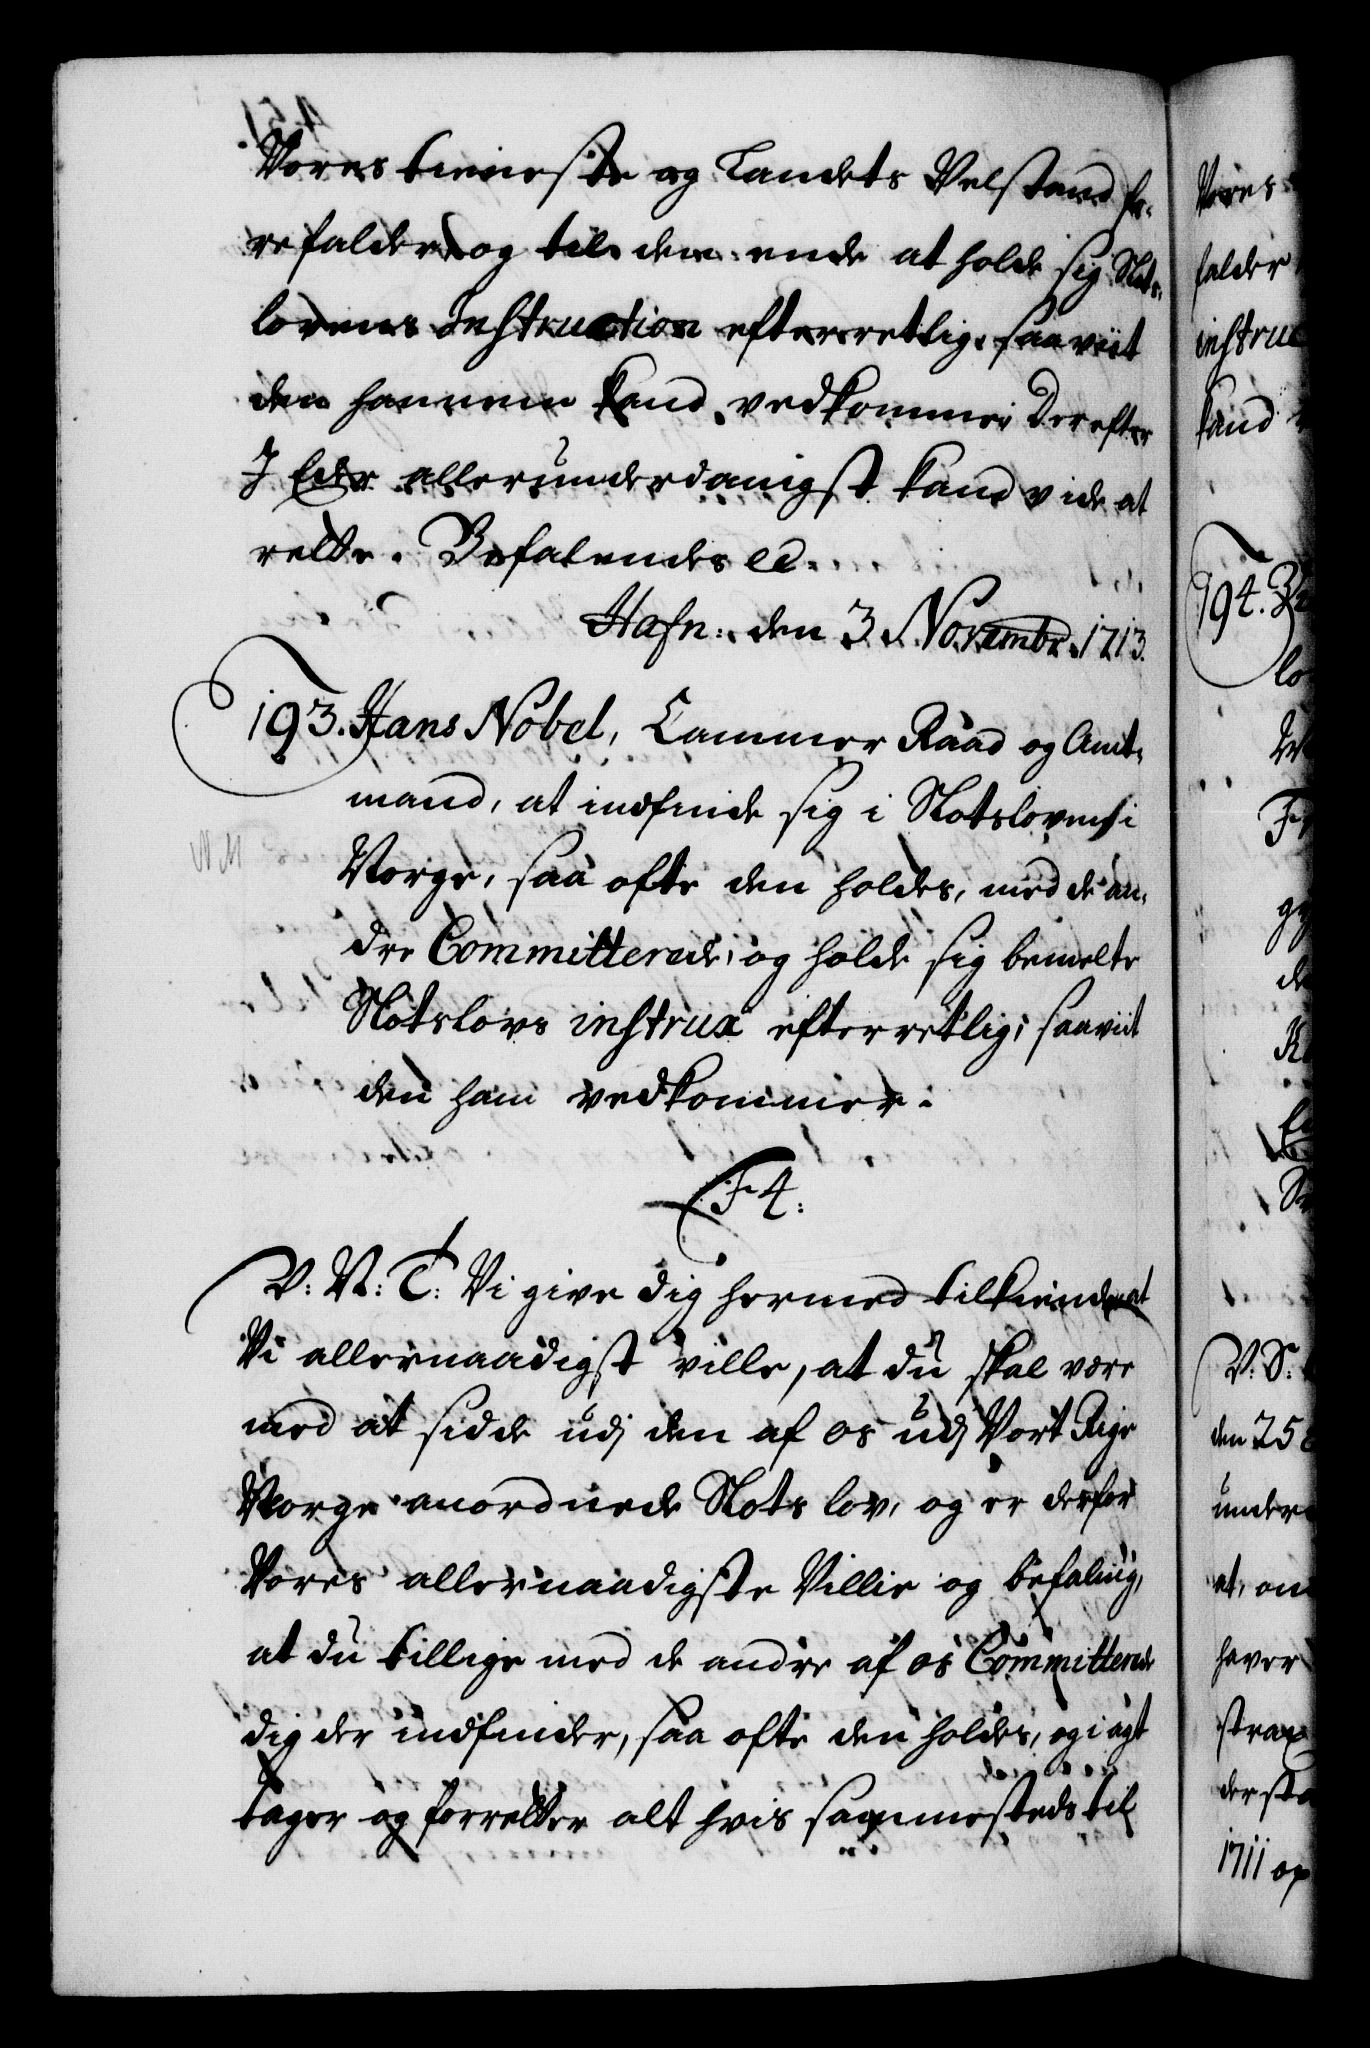 Vores tieniste og Landets Velstand fo-
refalder, og til den ende at holde sig Slots-
lovens Instruction efterrettlig, saaviit
den hannem kand vedkomme; Derefter
I Eder allerunderdanigst kand vide at
rette. Befalendes etc.
Hafn: den 3 Novembr. 1713.
193. Hans Nobel, Cammer Raad og Amt-
mand, at indfinde sig i Slotsloven i
Norge, saa ofte den holdes, med de an-
dre Committerede, og holde sig bemelte
Slotslovs instrux efterretlig, saaviit
den ham vedkommer.
F 4.
V: N: T: Vi give dig hermed tilkiende, at
Vi allernaadigst ville, at du skal være
med at sidde udj den af os udj Vort Rige
Norge anordnede Slots lov, og er derfor
Vores allernaadigste Villie og befaling,
at du tillige med de andre af os Committerede
dig der indfinder, saa ofte den holdes, og i agt
tager og forretter alt hvis sammesteds til
Vores
falder
instruc
kand
194.
V. S:
den 25
under
at, om
haver
strax
1711 op